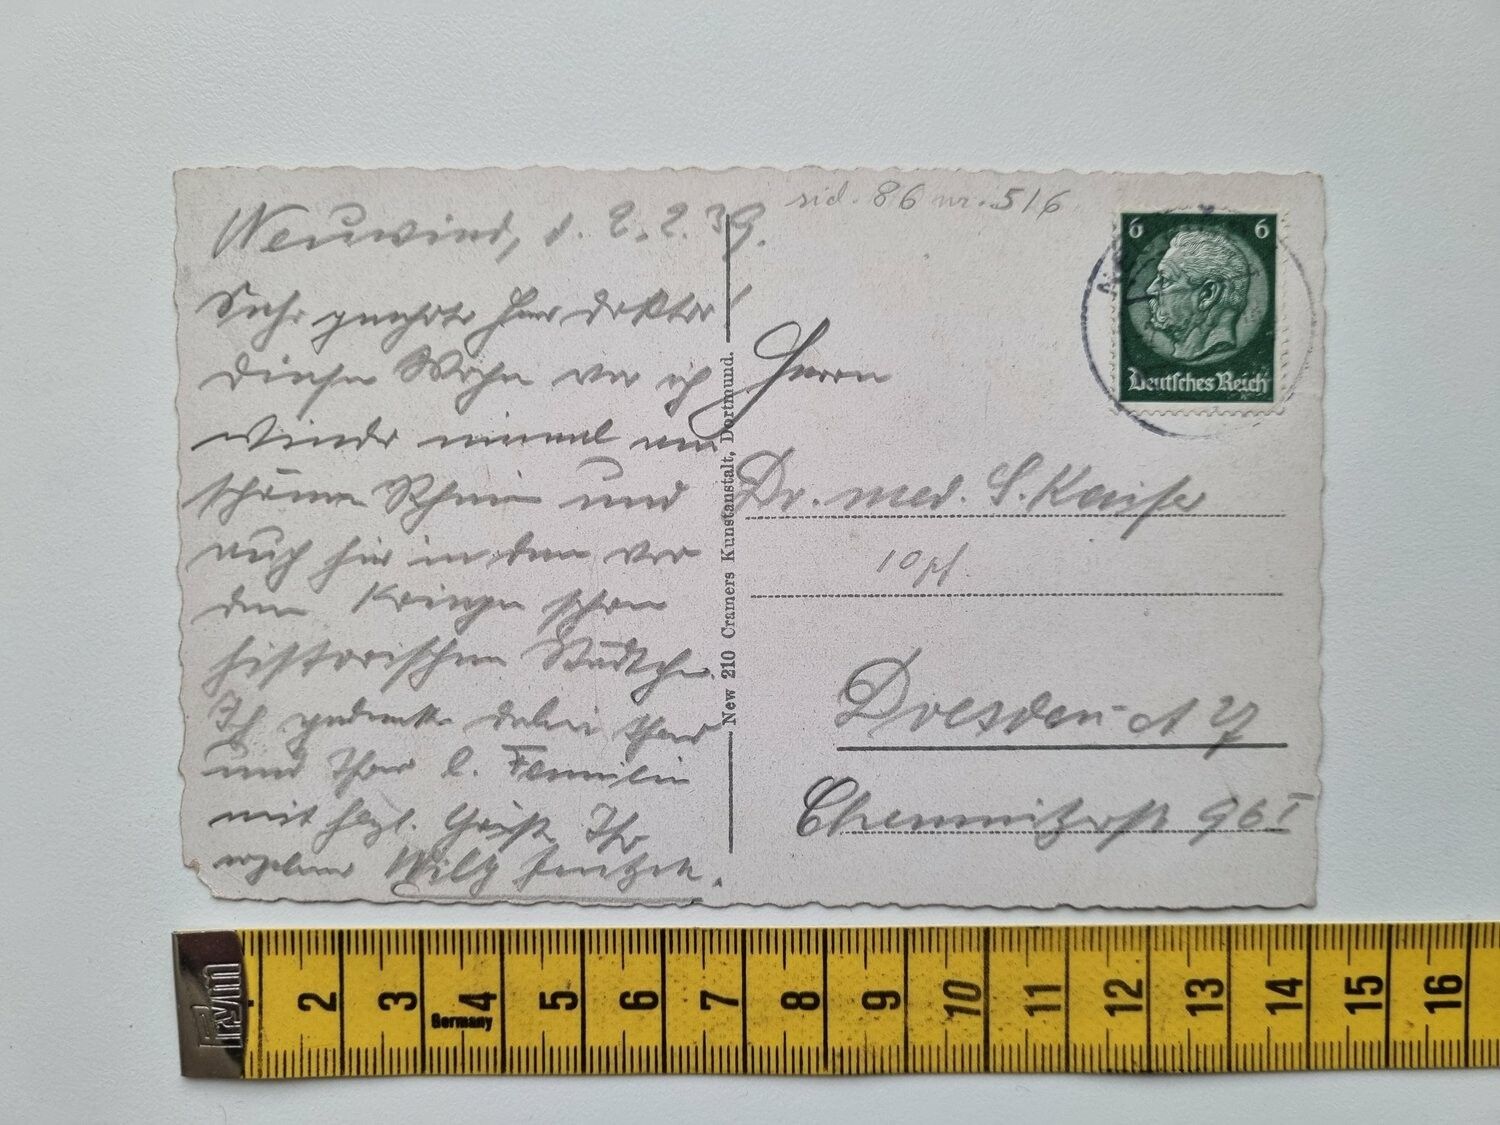 Neuwied, d. 2.2.39.
Sehr geehrter Herr Doktor!
Diese Woche war ich
wieder einmal am
schönen Rhein und
auch hier in dem vor
dem Kriege schon
historischen Städtchen.
Ich gedenke dabei Ihrer
und Ihrer l. Familie
mit herzl. Grüßen Ihr
ergebener
New 210 Cramers Kunstanstalt, Dortmund.
sid. 86 nr. 516
6 6
Deutsches Reich
Herrn
Dr. med. S. Kaiser
10 pf.
Dresden-A 27
Chemnitzerstr 96 I
Prym
2 3 4 5 6 7 8 9 10 11 12 13 14 15 16
Germany